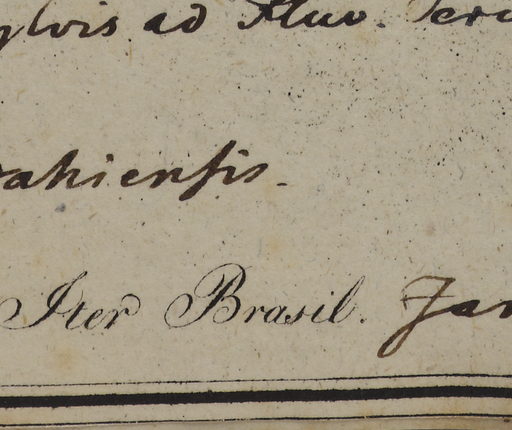 ylvis ad Fluv.
ahiensis.
Iter Brasil. Jan